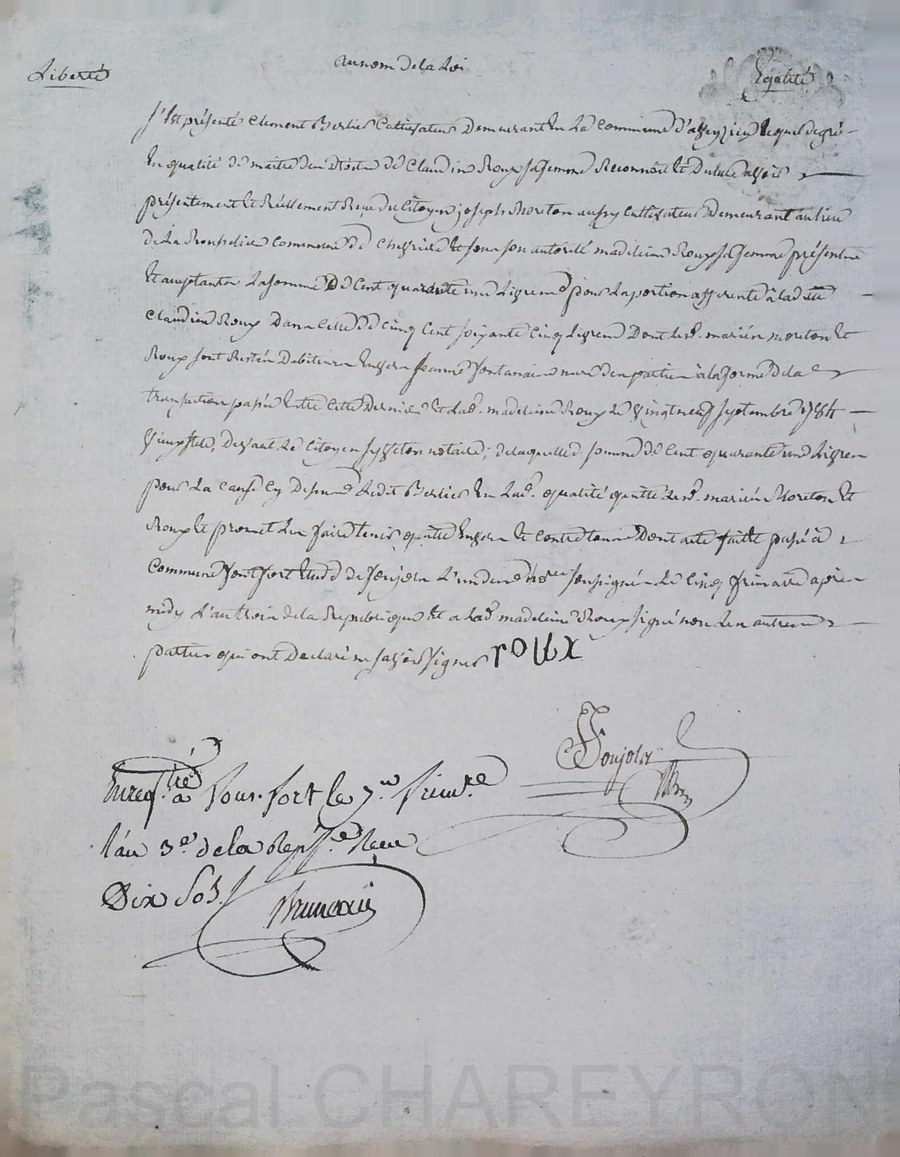 Liberté
au nom de la Loi
Egalité
S'Est présenté Clement Berlier Cultivateur Demeurant En La Commune d' lequel de gré
En qualité de maitre des Droits de Claudine Roux sa femme Reconnoit Et avoir
présentement Et Réellement Reçu du Citoyen joseph Moreton aussy Cultivateur Demeurant au lieu
de La Commune De Et sous son autorité madeleine Roux sa femme présente
Et acceptante La somme De Cent quarante une Livres pour La portion afferente à ladite
Claudine Roux Dans Celle De Cinq Cent soixante Cinq Livres Dont lesd. mariés moreton Et
Roux sont Restés Debiteurs Envers Jeanne Fontanaise à la forme de la
transaction passée Entre Cette Derniere Et Lad. madeleine Roux Le vingt neuf septembre 1784
devant Le Citoyen notaire; de laquelle somme De Cent quarante une Livres
pour La Cause Cy Dessus Ledit Berlier En Lad. qualité quitte lesd. mariés Moreton Et
Roux Et promet Les faire tenir quitte Envers Et Contre tous Dont acte fait Et passé à
Commune Fontfort Etude de foujols L'un des nores soussigné Le Cinq frimaire après
midy L'an trois de la Republique Et a Lad. madeleine Roux signé non Les autres
parties qui ont Declaré ne savoir signer roux
foujols
Enregtré à Fonfort le 7 frimre
l'an 3e de la Repque Reçu
Dix Sols
Pascal CHAREYRON